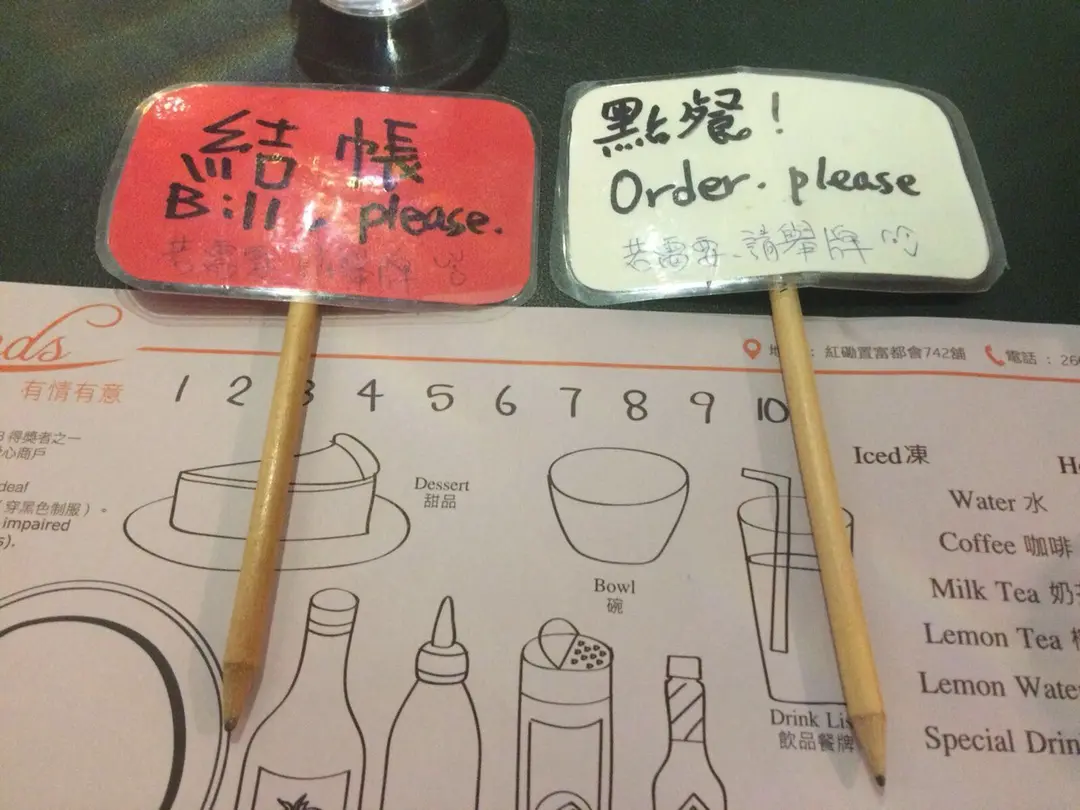 結帳
Bill, please.
若需要 請舉牌
點餐!
Order. please
若需要、請舉牌
ds
有情有意
紅磡置富都會742舖
電話：26
1 2 3 4 5 6 7 8 9 10
得獎者之一
心商戶
deaf
(穿黑色制服)。
impaired
s).
Dessert
甜品
Bowl
碗
Iced凍
Water 水
Coffee 咖啡
Milk Tea 奶
Lemon Tea
Lemon Wate
Special Drin
Drink Lis
飲品餐牌